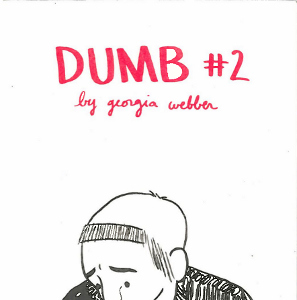 DUMB #2
by georgia webber